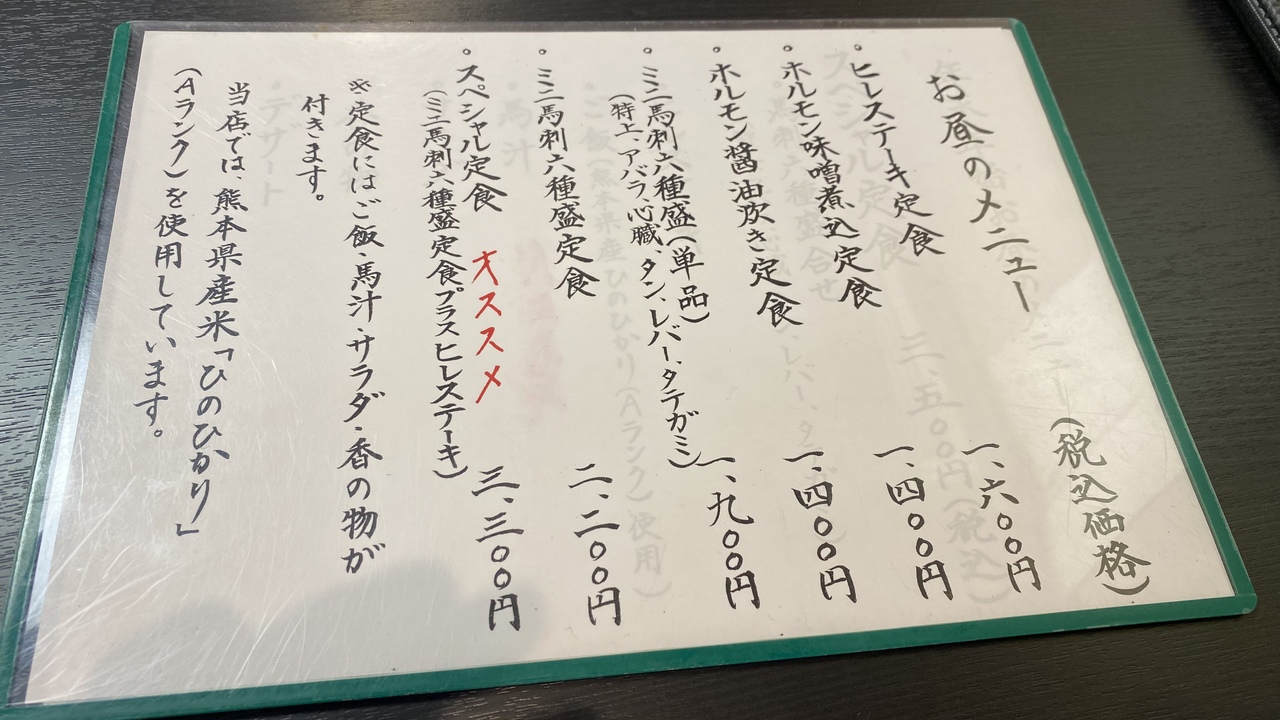 お昼のメニュー（税込価格）
・ヒレステーキ定食 一、六〇〇円
・ホルモン味噌煮込定食 一、四〇〇円
・ホルモン醤油炊き定食 一、四〇〇円
・ミニ馬刺六種盛（単品） 一、九〇〇円
（特上、アバラ、心臓、タン、レバー、タテガミ）
・ミニ馬刺六種盛定食 二、二〇〇円
・スペシャル定食 オススメ 三、三〇〇円
（ミニ馬刺六種盛定食プラスヒレステーキ）
※定食にはご飯・馬汁・サラダ・香の物が
付きます。
当店では、熊本県産米「ひのひかり」
（Aランク）を使用しています。